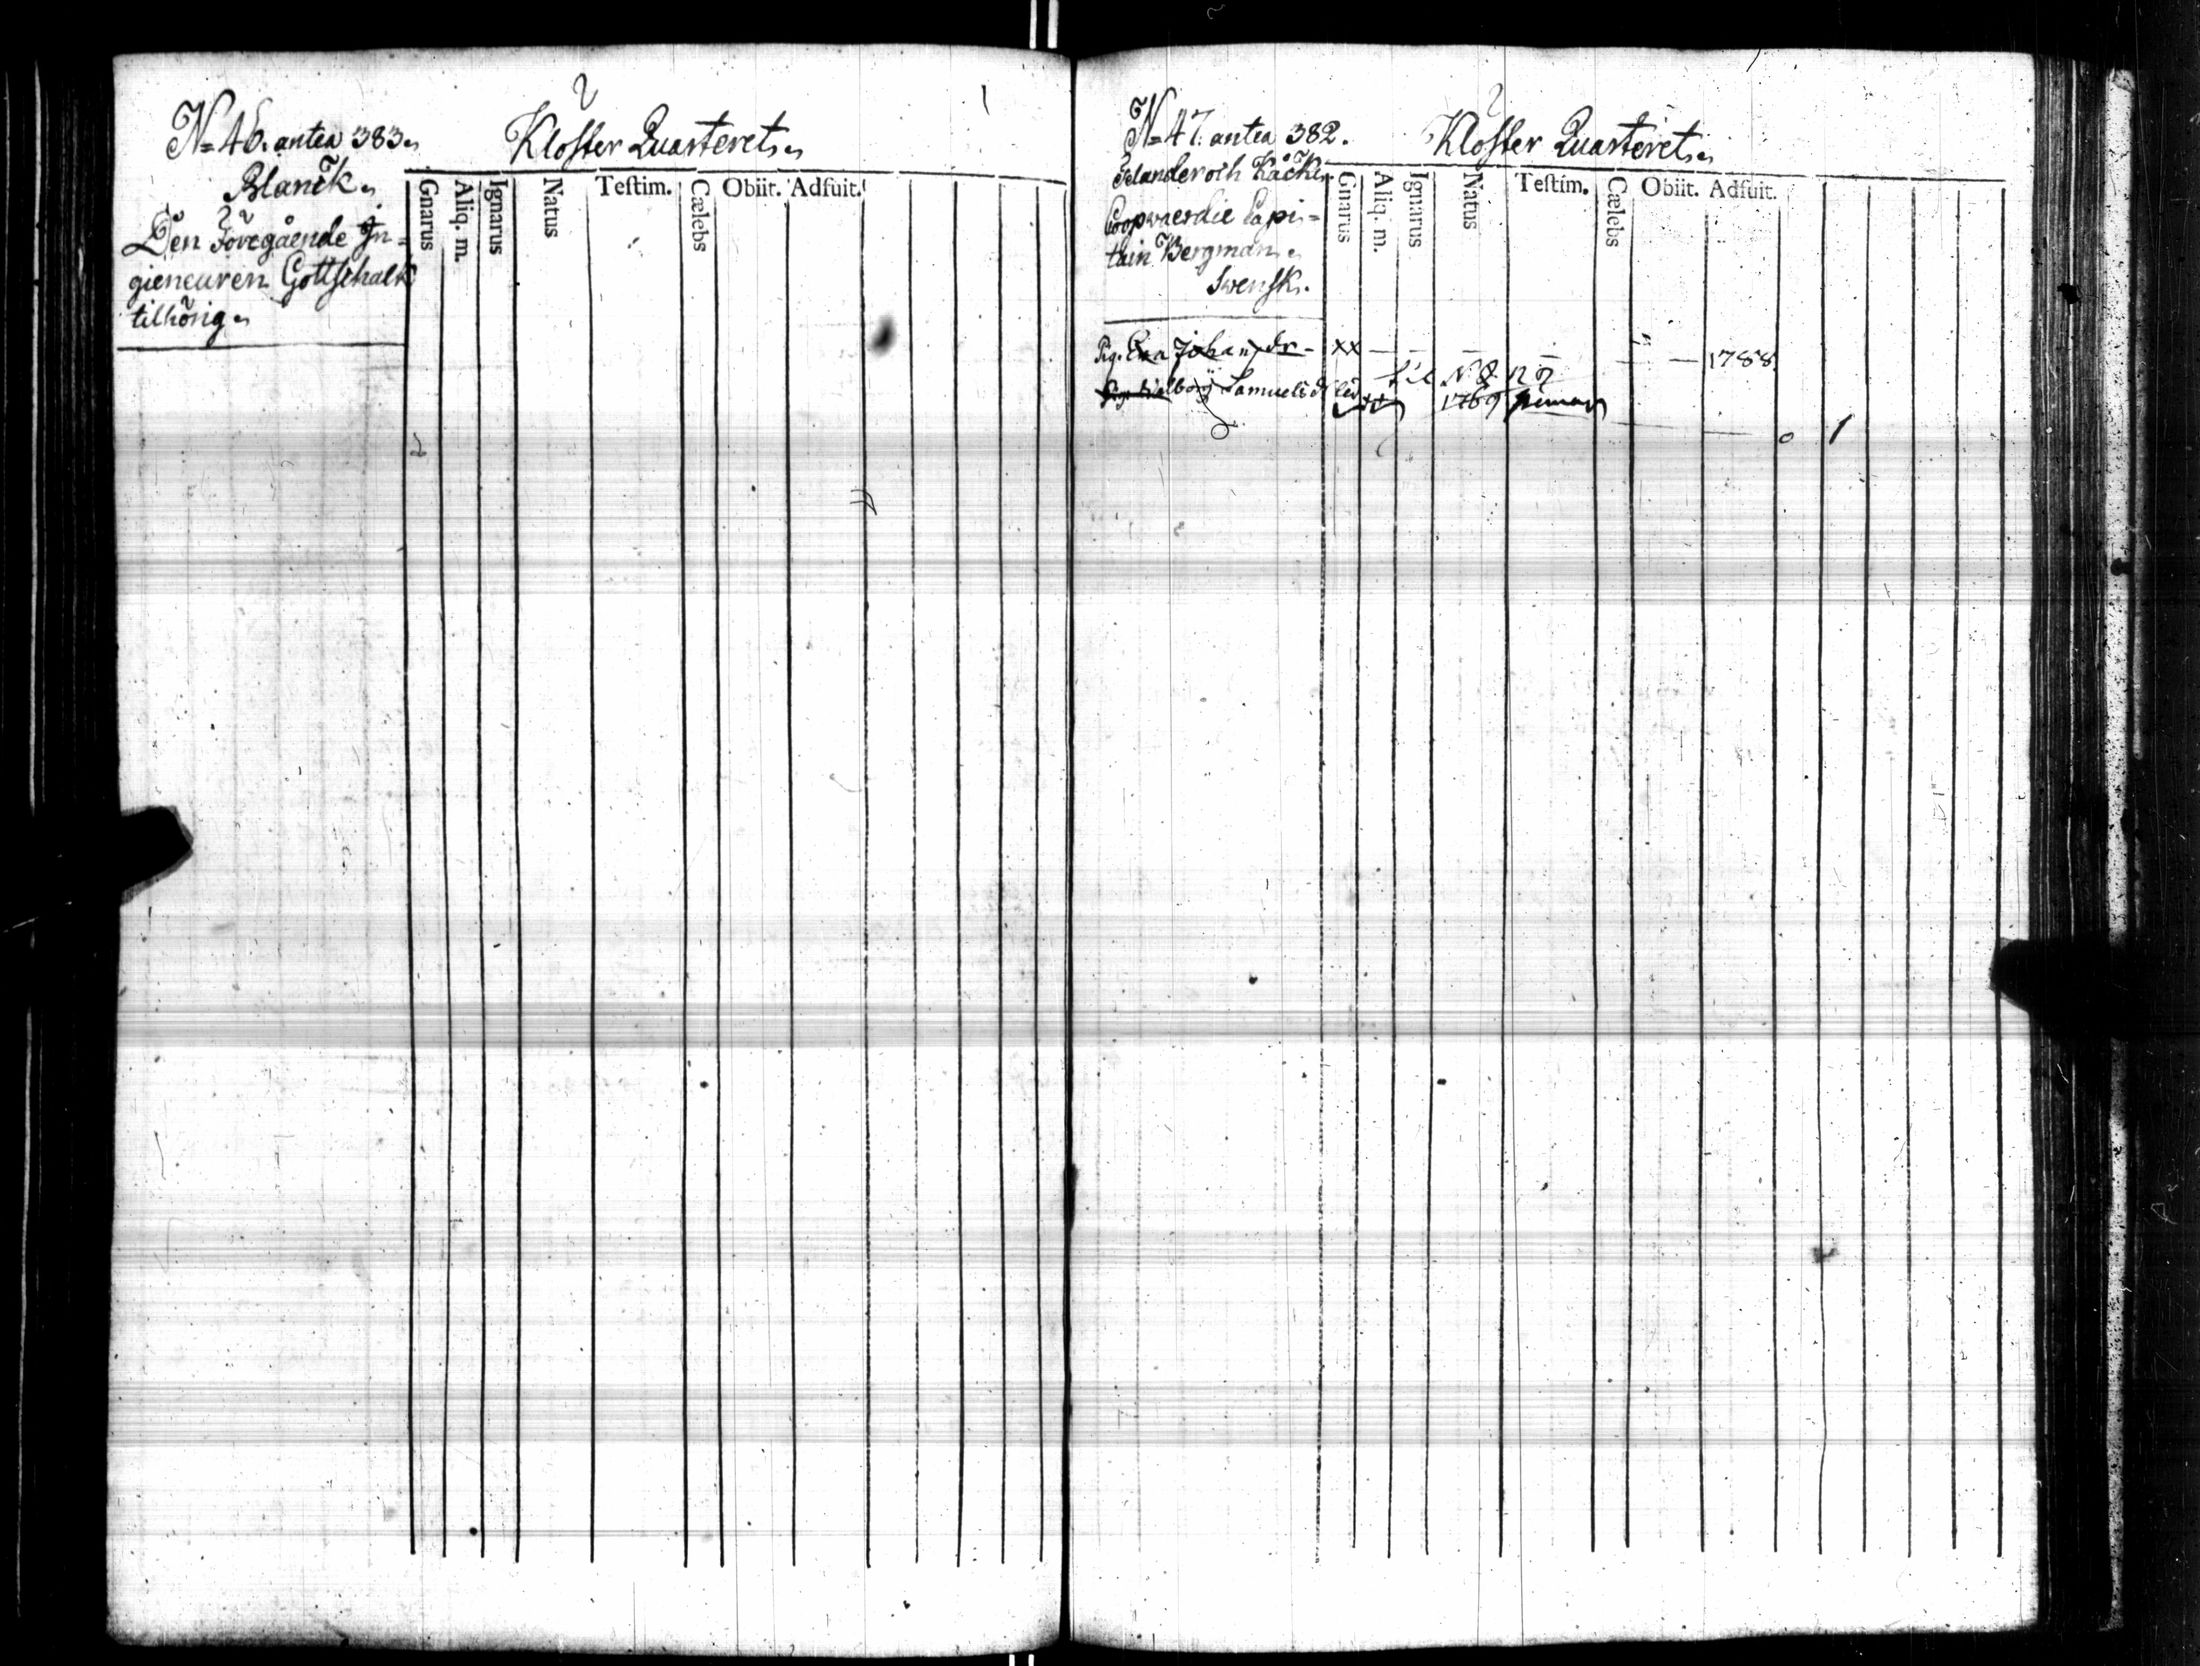 N=46. antea 383.
Kloster Quarteret.
Blanck.
Den Föregående In=
gieneuren Gottschalk
tilhörig.
Gnarus Aliq. m. Ignarus Natus Testim. Cælebs Obiit. Adfuit.
N=47. antea 382.
Kloster Quarteret.
och
Coopvaerdie Capi=
tain Bergman.
Swensk.
Gnarus Aliq. m. Ignarus Natus Testim. Cælebs Obiit. Adfuit.
Pig. Johansdr xx — — — — — — — 1788
Samuelsd
1769
0 1